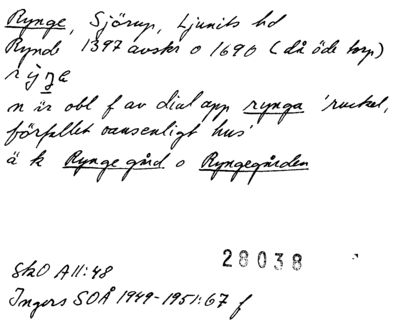 Rynge, Sjörup, Ljunits hd
Rynde 1397 avskr o 1690 (då öde torp)
n är obl f av dial app rynga 'ruckel,
förfallet oansenligt hus'
ä k Rynge gård o Ryngegården
28038
SkO A11:48
Ingers SOÅ 1949-1951:67 f